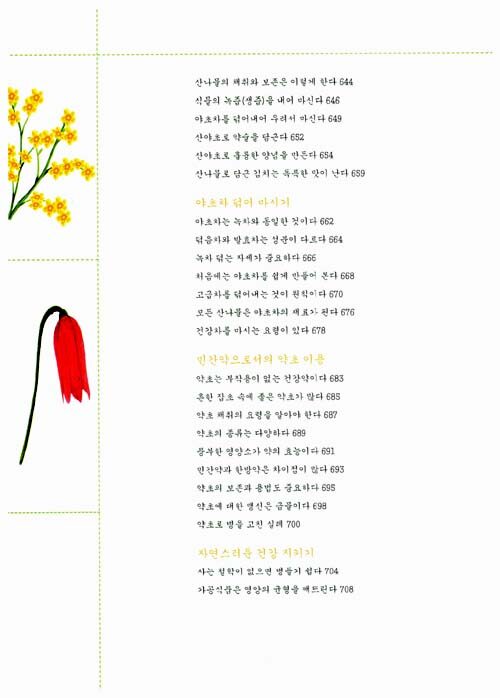 산나물의 채취와 보존은 이렇게 한다 644
식물의 녹즙(생즙)을 내어 마신다 646
야초차를 덖어내어 우려서 마신다 649
산야초로 약술을 담근다 652
산야초로 훌륭한 양념을 만든다 654
산나물로 담근 김치는 독특한 맛이 난다 659
야초차 덖어 마시기
야초차는 녹차와 동일한 것이다 662
덖음차와 발효차는 성분이 다르다 664
녹차 덖는 자세가 중요하다 666
처음에는 야초차를 쉽게 만들어 본다 668
고급차를 덖어내는 것이 원칙이다 670
모든 산나물은 야초차의 재료가 된다 676
건강차를 마시는 요령이 있다 678
민간약으로서의 약초 이용
약초는 부작용이 없는 건강약이다 683
흔한 잡초 속에 좋은 약초가 많다 685
약초 채취의 요령을 알아야 한다 687
약초의 종류는 다양하다 689
풍부한 영양소가 약의 효능이다 691
민간약과 한방약은 차이점이 많다 693
약초의 보존과 용법도 중요하다 695
약초에 대한 맹신은 금물이다 698
약초로 병을 고친 실례 700
자연스러운 건강 지키기
사는 철학이 없으면 병들기 쉽다 704
가공식품은 영양의 균형을 깨트린다 708